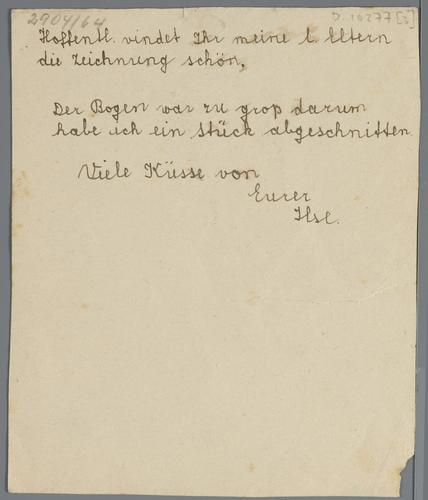 2904/64
D. 10277 [3]
Hoffentl. vindet Ihr meine l. Eltern
die Zeichnung schön.
Der Bogen war zu grop darum
habe ich ein Stück abgeschnitten
Viele Küsse von
Eurer
Ilse.